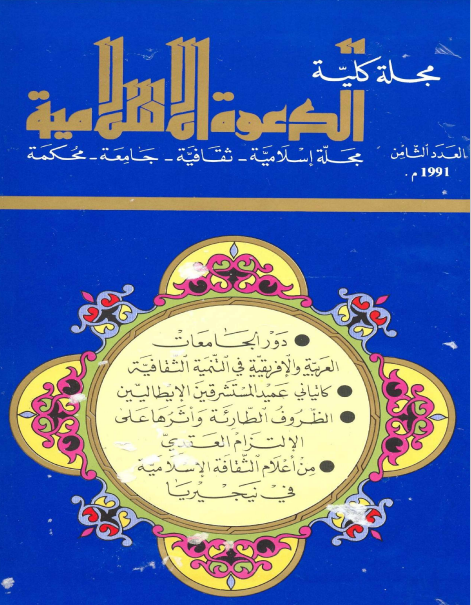 مجلة كليّة
الدعوة الإسلامية
مجلّة إسلاميّة - ثقافيّة - جامعة - محكمة
العدد الثامن
1991 م.
● دور الجامعات
العربية والإفريقية في التنمية الثقافية
● كايتاني عميد المستشرقين الإيطاليين
● الظروف الطارئة وأثرها على
الإلتزام العقدي
● من أعلام الثقافة الإسلامية
في نيجيريا